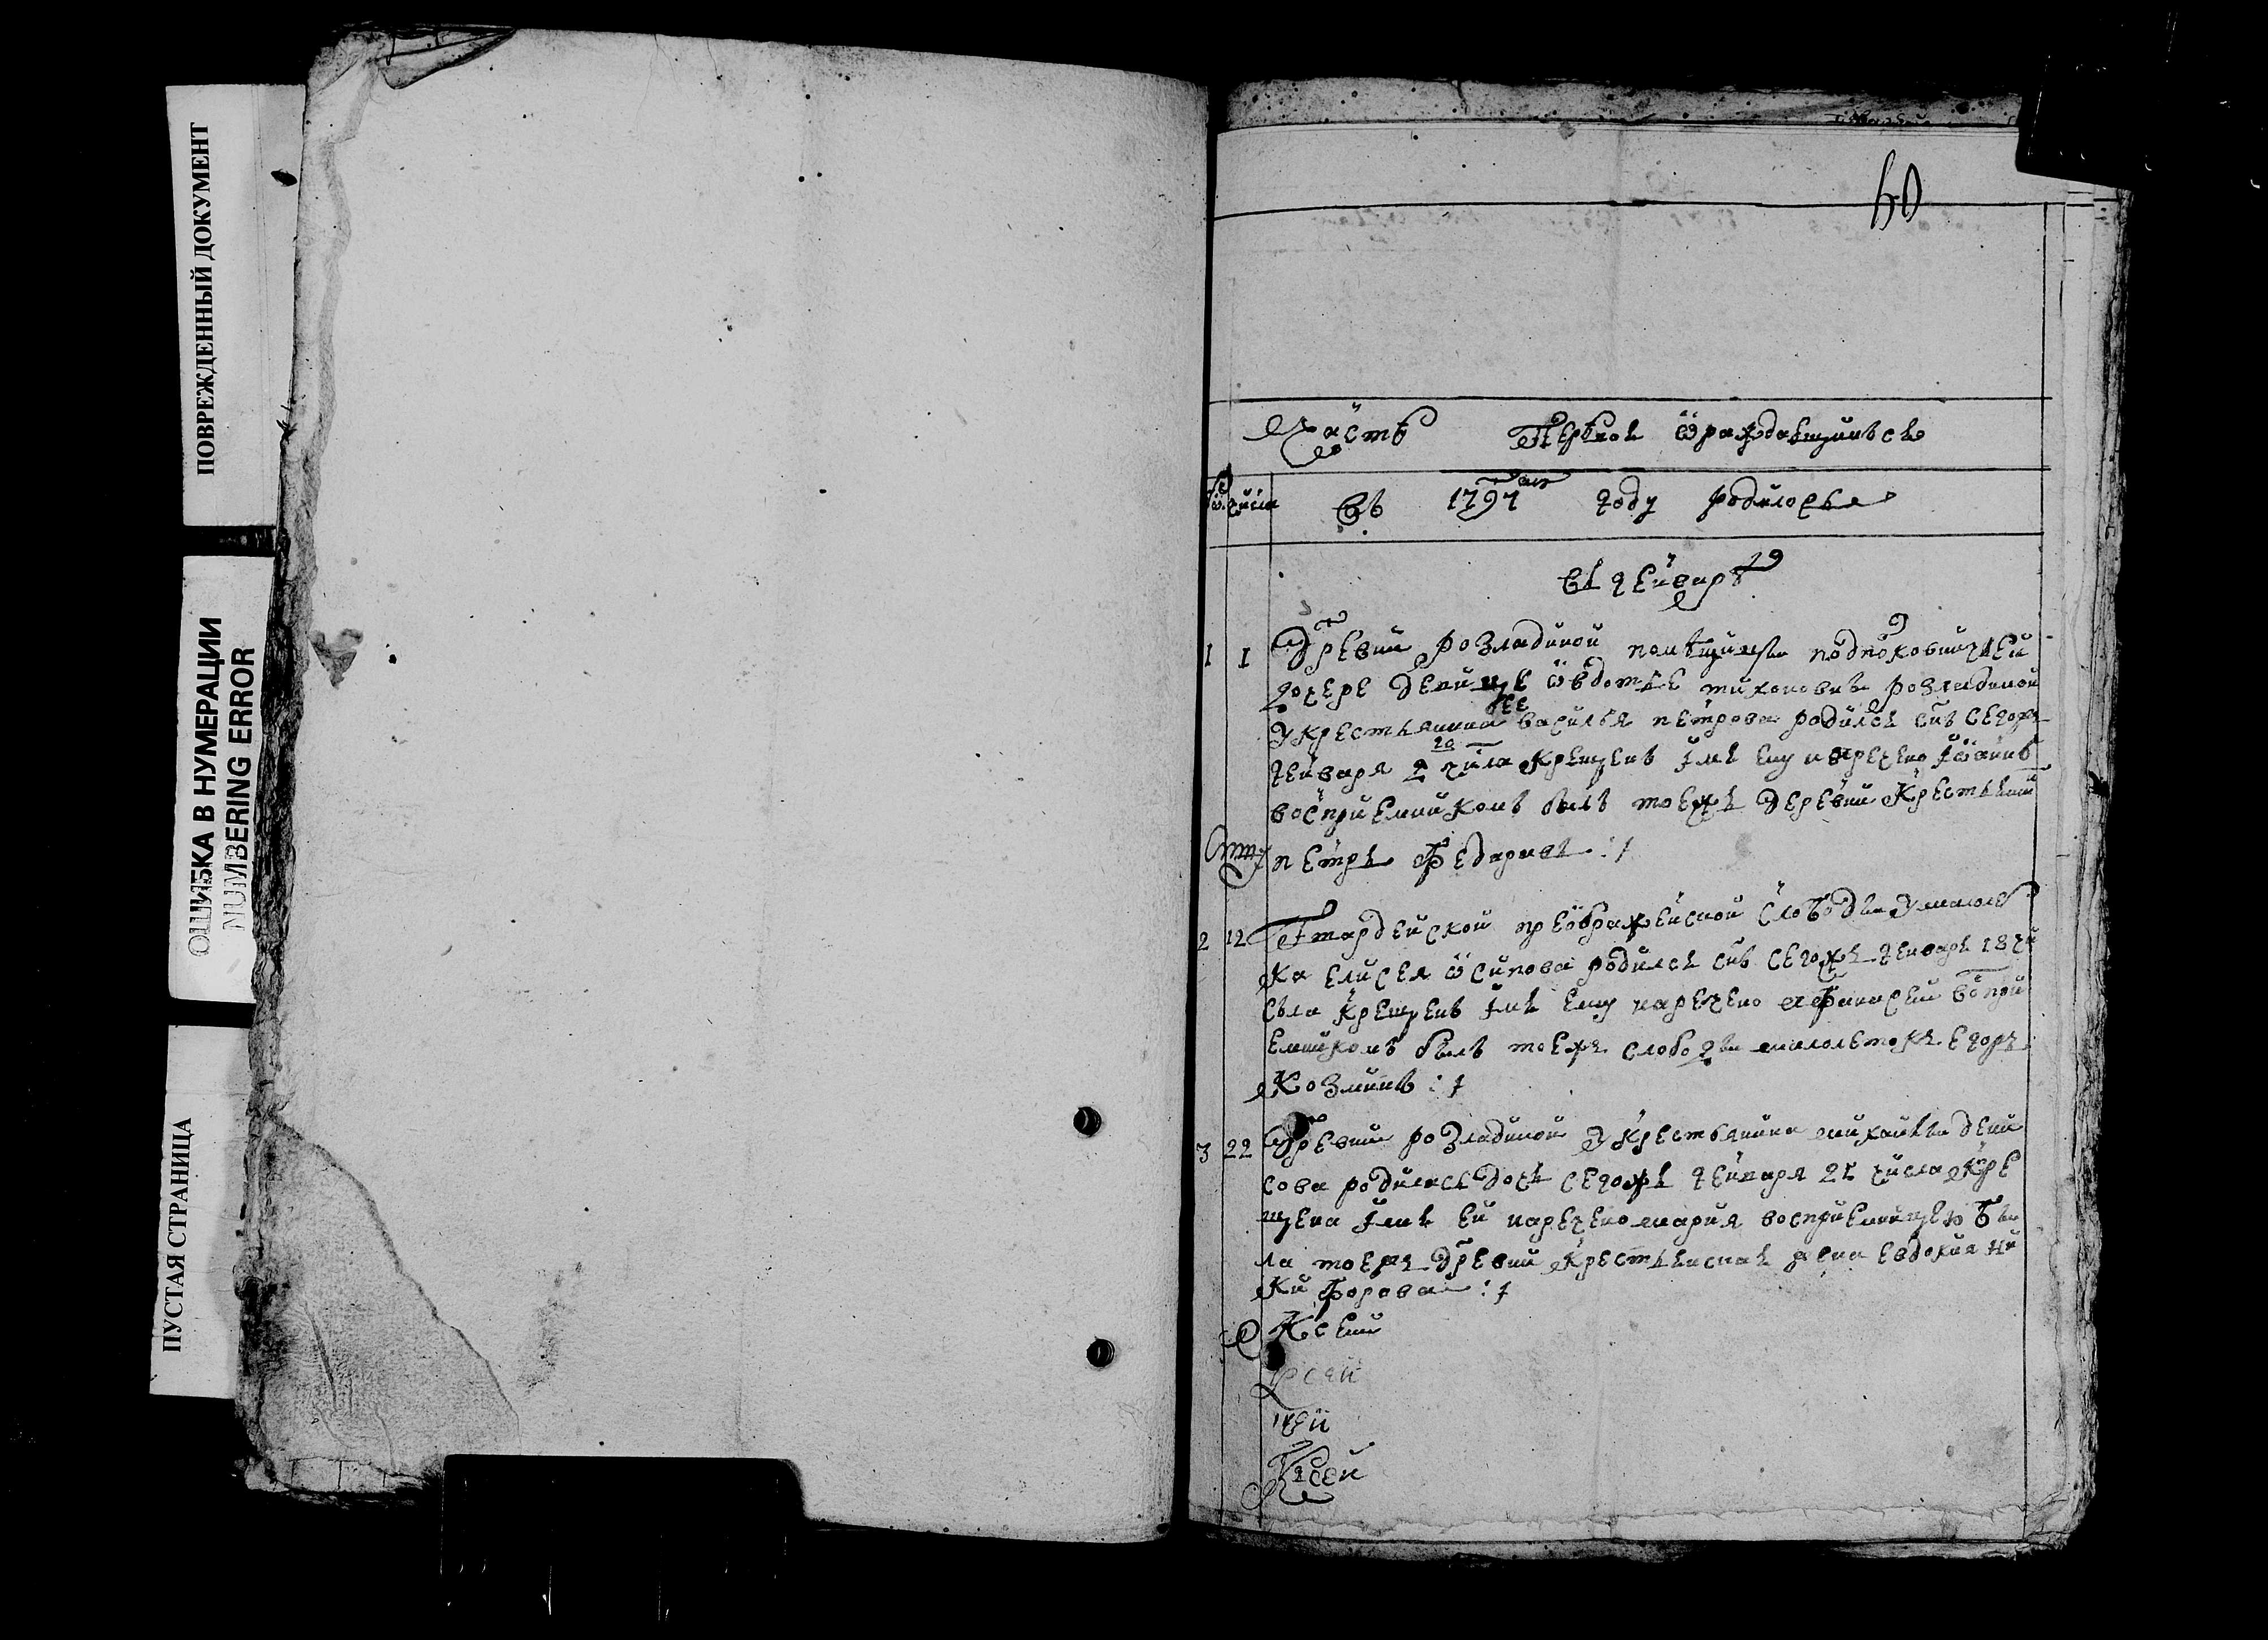 ПОВРЕЖДЕННЫЙ ДОКУМЕНТ
ОШИБКА В НУМЕРАЦИИ
NUMBERING ERROR
ПУСТАЯ СТРАНИЦА
часть Первая ѿраждающихся
числа въ 1797 году родилось
въ генваре
1 1 Древни розладиной помещицы подпоковничей
дочере девице ѡвдотье тихоновне розладиной
у крестьянина ее василья петрова родился снъ сегож
генваря 2 го числа крещенъ имя ему наречено іѡаннъ
восприемникомъ былъ тоежъ деревни крестьянин
петръ Федаравъ
2 12 Гвардейской преѡбраженской слободы у малолет
ка елисея ѡсипова родился снъ сегожъ генваря 18 чи
сла крещенъ имя ему наречено афанасей воспри
емникомъ былъ тоежъ слободы малолетокъ егоръ
Козминъ
3 22 Древни розладиной у крестьянина михаила дени
сова родилась дочь сегожъ генваря 21 числа кре
щена имя ей наречено мария восприемницею бы
ла тоежъ древни крестьянская жена евдокия ни
кифорова